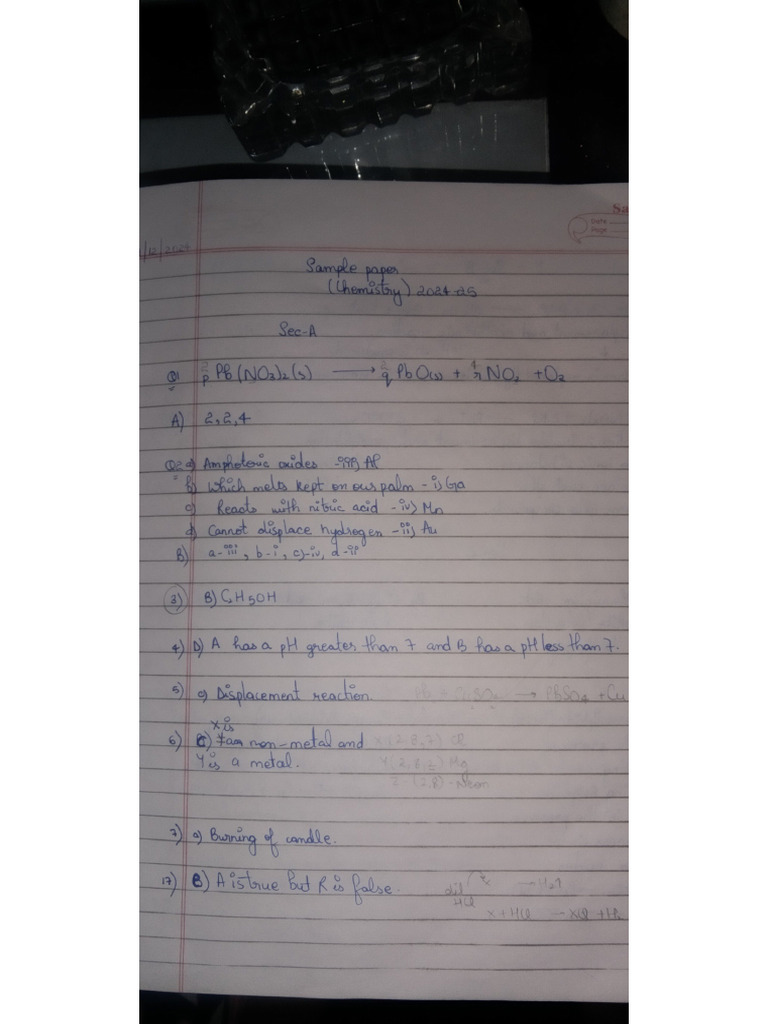 Sa
Date
Page
/12/2024
Sample paper
(Chemistry) 2024-25
Sec-A
Q1 2 p Pb(NO3)2(s) ⟶ 2 q PbO(s) + 4 r NO2 + O2
A) 2,2,4
Q2 a) Amphoteric oxides -iii) Al
b) Which melts kept on our palm - i) Ga
c) Reacts with nitric acid -iv) Mn
d) Cannot displace hydrogen -ii) Au
B) a-iii, b-i, c)-iv, d-ii
3) B) C2H5OH
4) D) A has a pH greater than 7 and B has a pH less than 7.
5) c) Displacement reaction. → PbSO4 + Cu
X is
6) C) non-metal and X(2,8,7) Cl
Y is a metal. Y(2,8,2) Mg
Z-(2,8)-Neon
7) a) Burning of candle.
17) B) A is true but R is false. dil → H2↑
HCl
X+HCl — XCl + H2